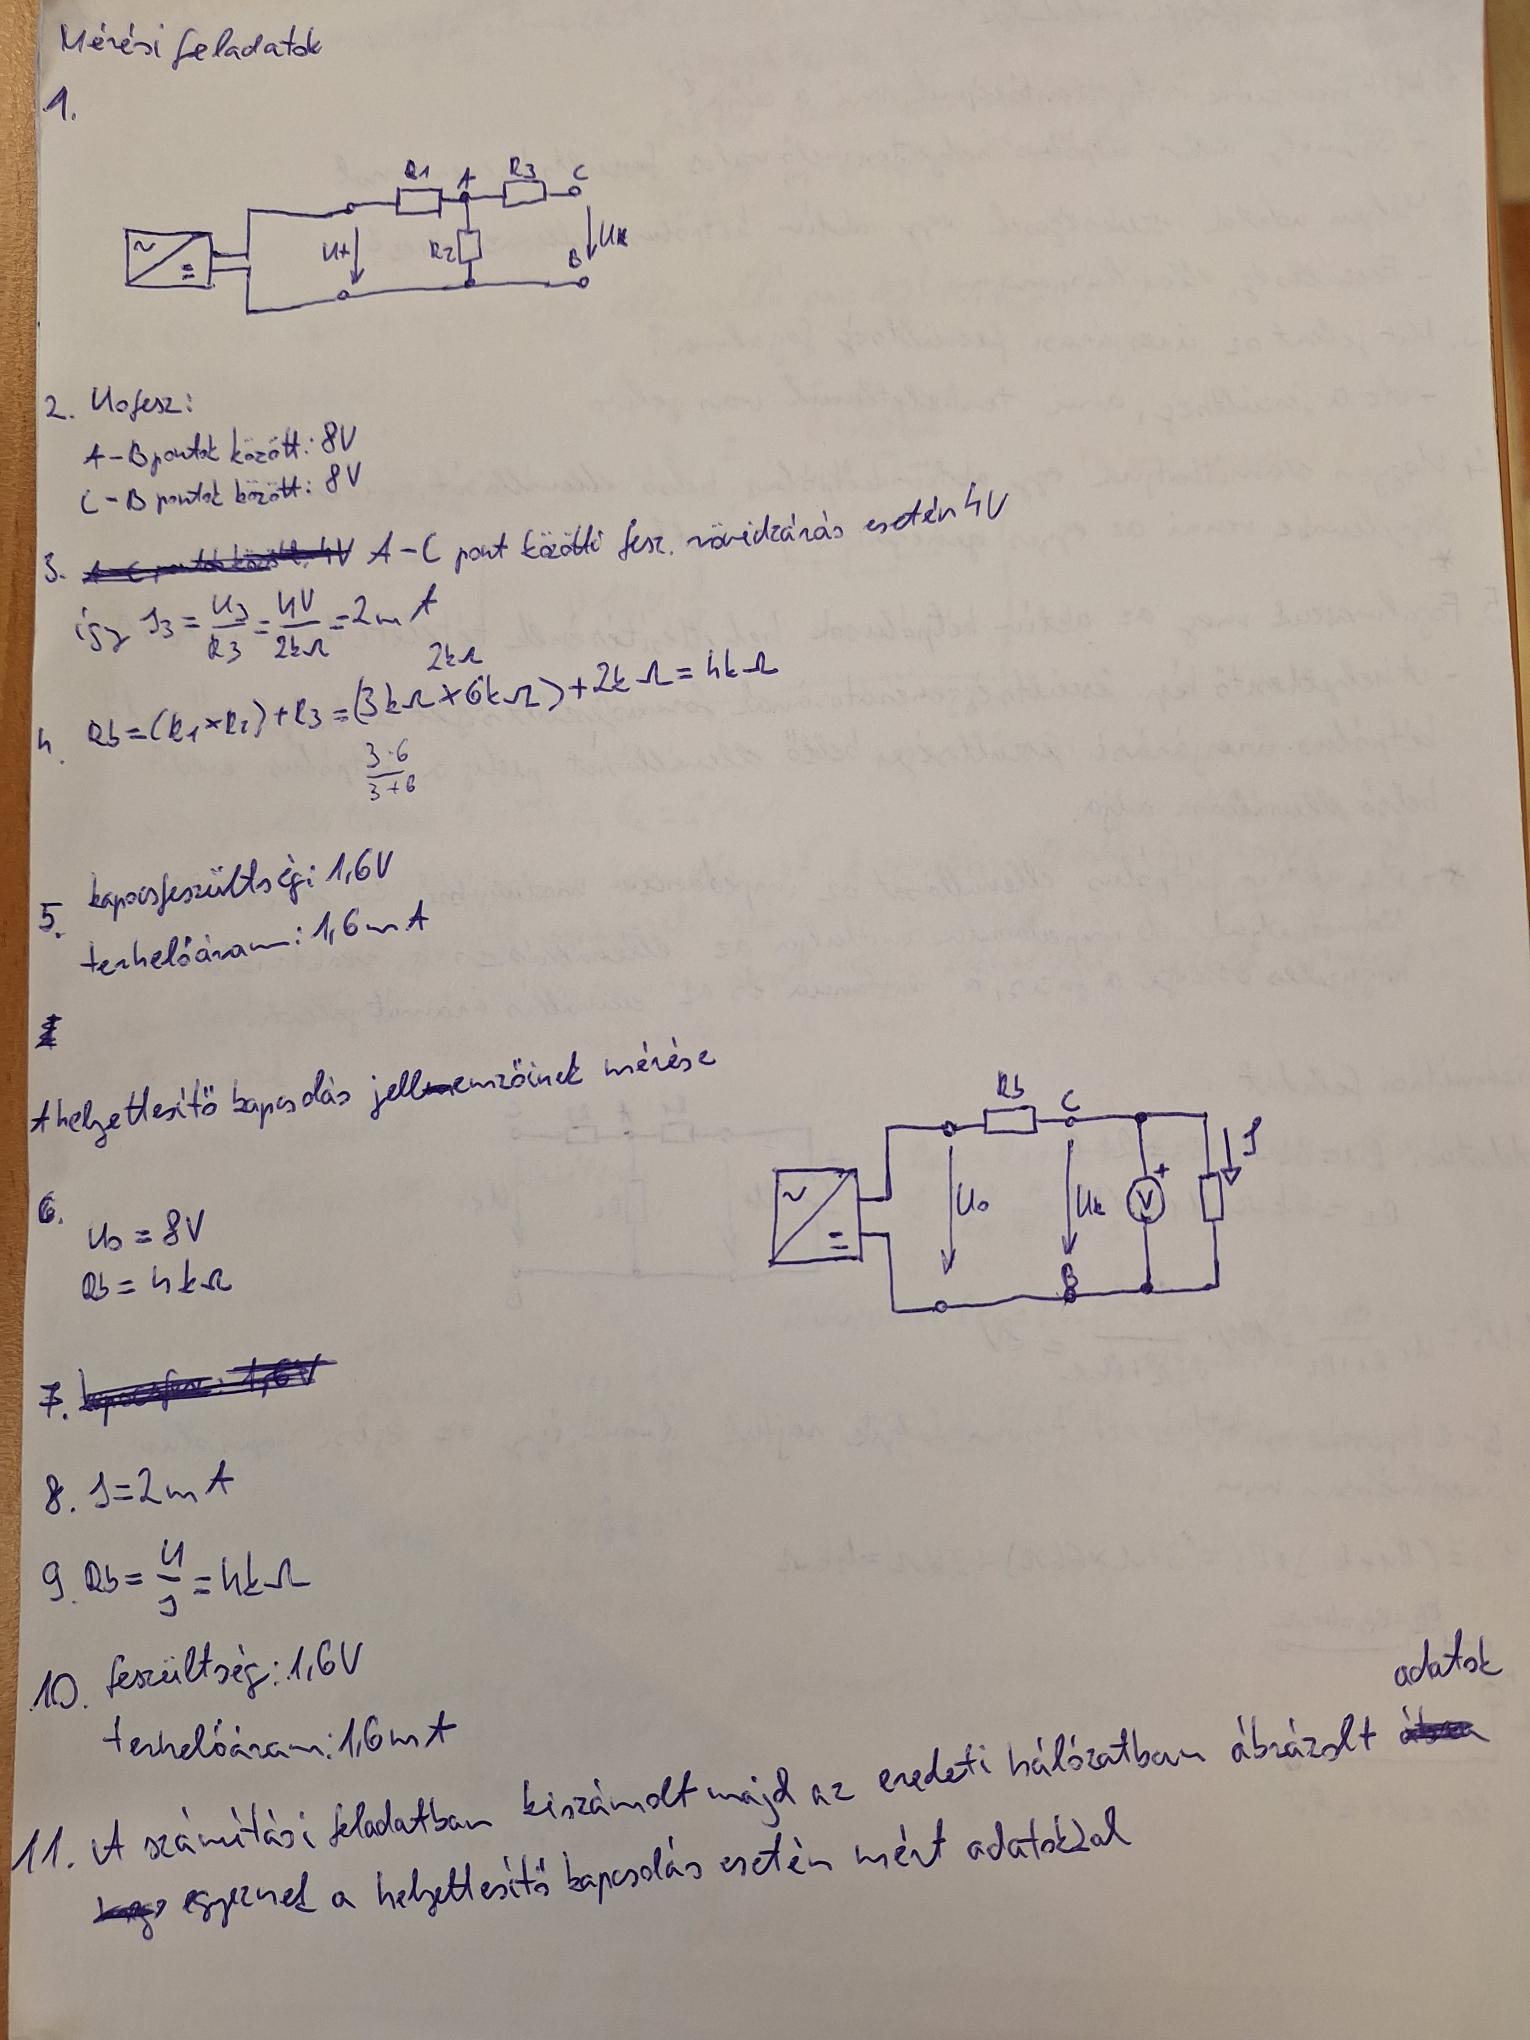 Mérési feladatok
1.
R1 A R3 C
~ = Ut R2 B Uk
2. Uofesz:
A-B pontok között: 8V
C-B pontok között: 8V
3. A-C pont közötti fesz. rövidzárás esetén 4V
így I3 = U3/R3 = 4V/2kΩ = 2mA
2kΩ
4. Rb = (R1×R2) + R3 = (3kΩ×6kΩ) + 2kΩ = 4kΩ
3·6/3+6
5. kapocsfeszültség: 1,6V
terhelőáram: 1,6mA
A helyettesítő kapcsolás jellemzőinek mérése
Rb C
~ = Uo Uk V + I
B
6. Uo = 8V
Rb = 4kΩ
7.
8. I = 2mA
9. Rb = U/I = 4kΩ
10. feszültség: 1,6V
terhelőáram: 1,6mA
11. A számítási feladatban kiszámolt majd az eredeti hálózatban ábrázolt adatok
egyeznek a helyettesítő kapcsolás esetén mért adatokkal